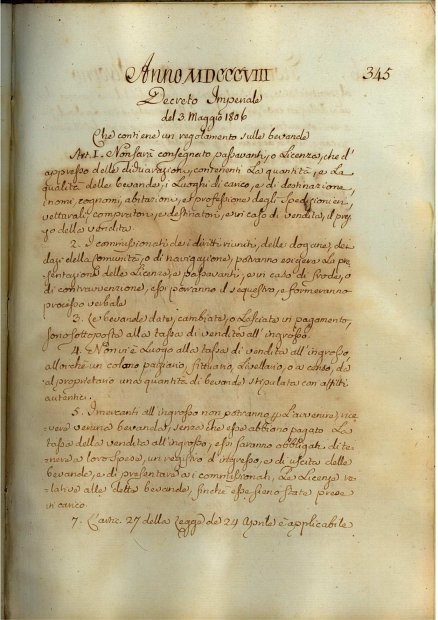 Anno MDCCCVIII 345
Decreto Imperiale
del 3. Maggio 1806
Che contiene un regolamento sulle bevande
Art. I. Non sarà consegnato passavanti, o Licenza, che d'
appresso delle dichiarazioni, contenenti La quantità, e La
qualità delle bevande, i Luoghi di carico, e di destinazione,
i nomi, cognomi, abitazioni, et professione degli Spedizionieri,
vetturali, compratori, e destinatori, e in caso di vendita, il prez
zo della vendita.
2. I commissionati de i diritti riuniti, delle dogane, dei
dazi della Comunità, o di navigazione, potranno esigere La pre
sentazione delle Licenze, e passavanti, e in caso di frode, o
di contravvenzione, essi potranno il sequestro, e formeranno
processo verbale
3. Le bevande date, cambiate, o Lasciate in pagamento,
sono sottoposte alla tassa di vendita all'ingrosso.
4. Non vi è Luogo alla tassa di vendita all'ingrosso,
allorche un colono paziario, fittuario, Livellario, o a censo, dà
al proprietario una quantità di bevande stipulata con affitti
autentici.
5. I mercanti all'ingrosso non potranno p L'avvenire, rice
vere veruna bevanda, senza che esse abbiano pagato La
tassa della vendita all'ingrosso, essi saranno obbligati di te
nere a loro spese, un registro d'ingresso, e di uscita delle
bevande, e di presentare a i commissionati, Le Licenze re
lative alle dette bevande, finchè esse siano state prese
in carico
7. L'artic. 27 della Legge de 24 Aprile è applicabile